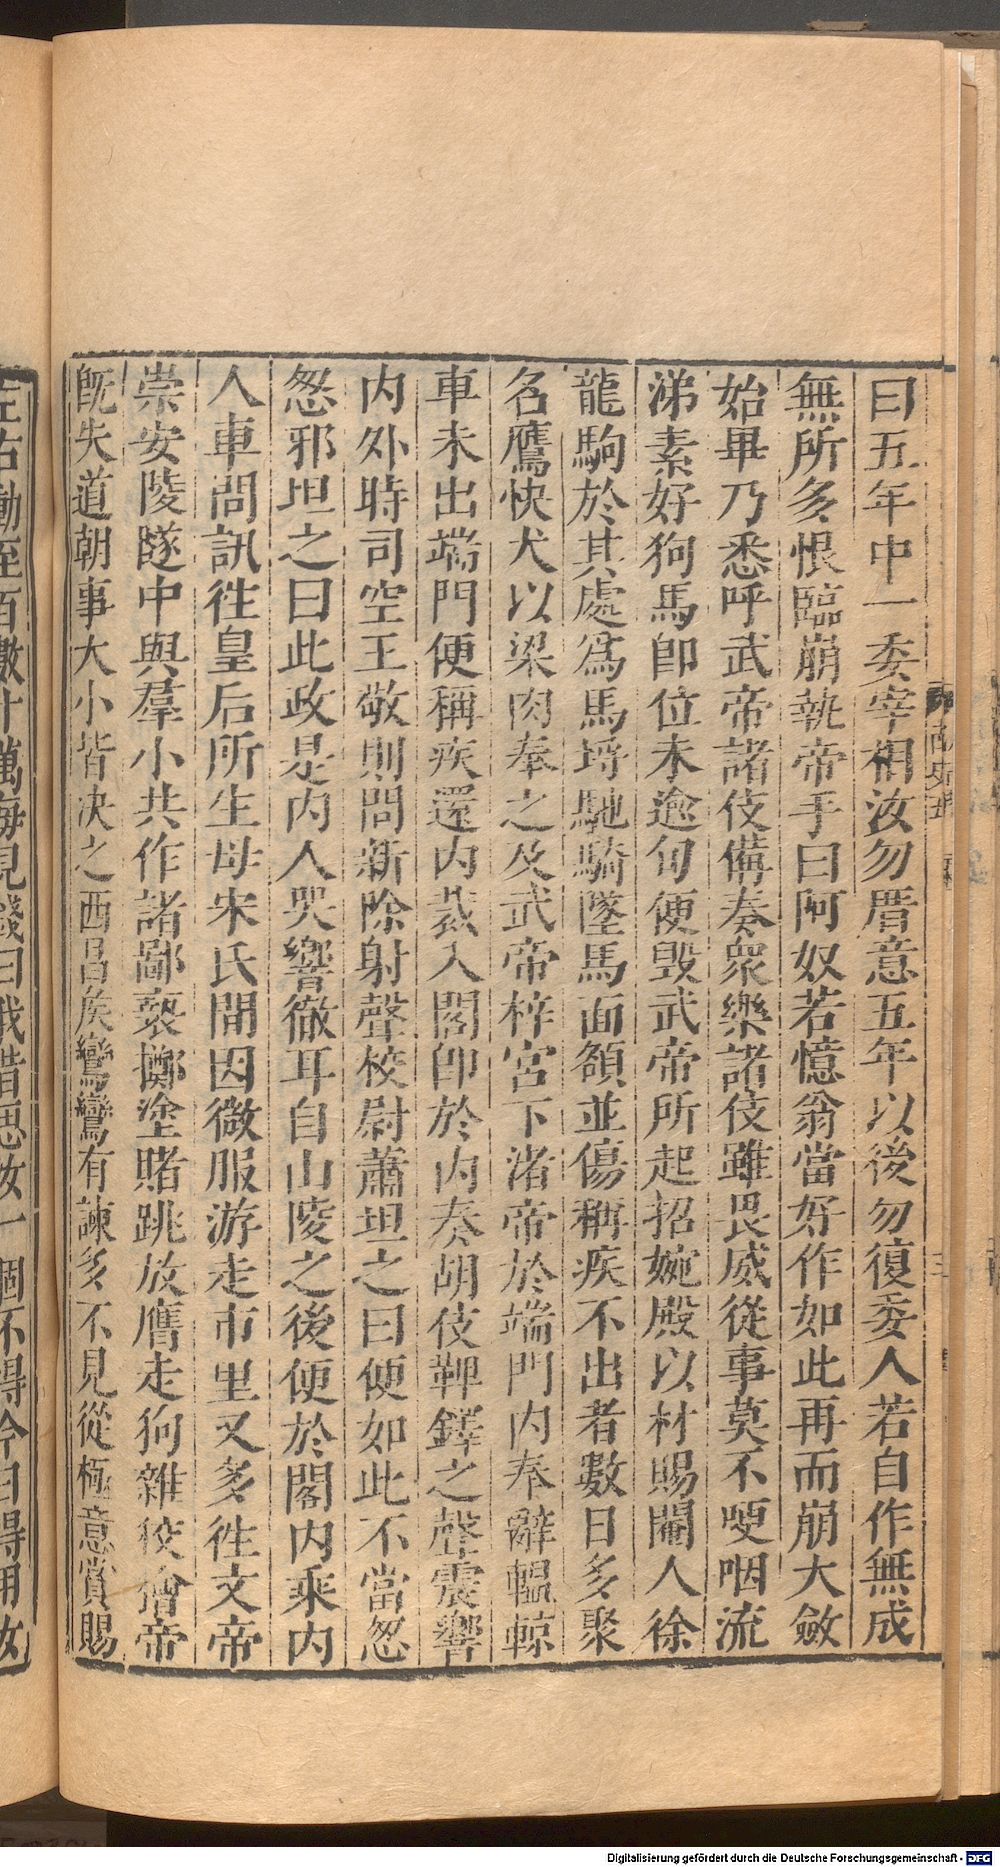 曰五年中一委宰相汝勿厝意五年以後勿復委人若自作無成
無所多恨臨崩執帝手曰阿奴若憶翁當好作如此再而崩大斂
始畢乃悉呼武帝諸伎備奏衆樂諸伎雖畏威從事莫不哽咽流
涕素好狗馬卽位未逾旬便毀武帝所起招婉殿以材賜閹人徐
龍駒於其處爲馬埒馳騎墜馬面頟並傷稱疾不出者數日多聚
名鷹快犬以梁肉奉之及武帝梓宮下渚帝於端門内奉辭轀輬
車未出端門便稱疾還内裁入閤卽於内奏胡伎鞞鐸之聲震響
内外時司空王敬則問新除射聲校尉蕭坦之曰便如此不當怱
怱邪坦之曰此政是内人哭響徹耳自山陵之後便於閤内乘内
人車問訊往皇后所生母宋氏間因微服游走市里又多往文帝
崇安陵隧中與羣小共作諸鄙褻擲塗賭跳放鷹走狗雜狡獪帝
旣失道朝事大小皆決之西昌侯鸞鸞有諫多不見從極意賞賜
左右動至百數十萬每見錢曰我昔思汝一個不得今日得用汝
Digitalisierung gefördert durch die Deutsche Forschungsgemeinschaft - DFG